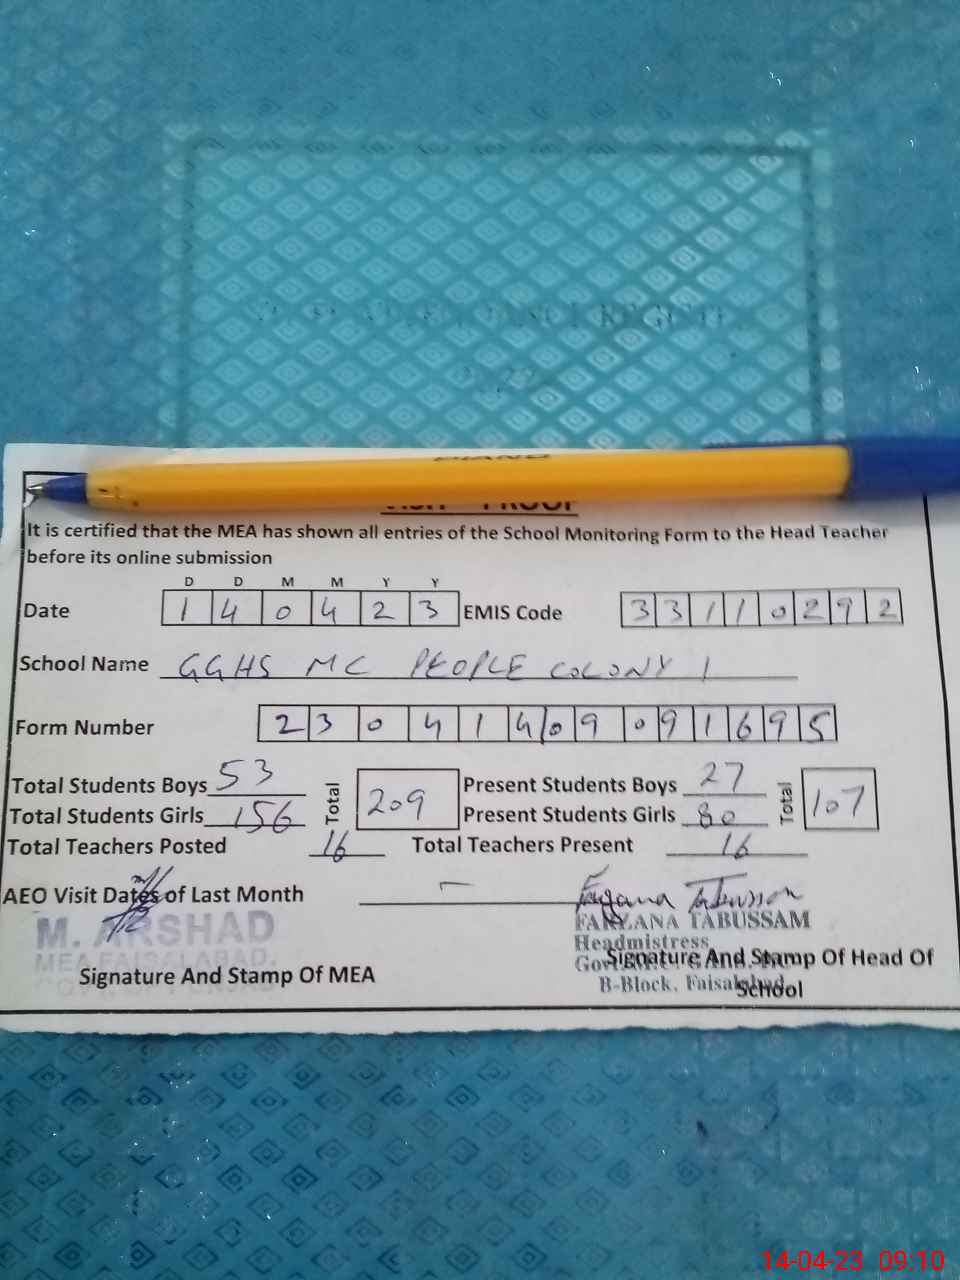 PIANO
VISIT PROOF
It is certified that the MEA has shown all entries of the School Monitoring Form to the Head Teacher
before its online submission
D D M M Y Y
Date 1 4 0 4 2 3 EMIS Code 3 3 1 1 0 2 9 2
School Name GGHS MC PEOPLE COLONY 1
Form Number 2 3 0 4 1 4 0 9 0 9 1 6 9 5
Total Students Boys 53 Total 209 Present Students Boys 27 Total 107
Total Students Girls 156 Present Students Girls 80
Total Teachers Posted 16 Total Teachers Present 16
AEO Visit Dates of Last Month –
Farzana Tabussam
M. ARSHAD
MEA FAISALABAD.
Signature And Stamp Of MEA
FARZANA TABUSSAM
Headmistress
B-Block, Faisalabad
Signature And Stamp Of Head Of
School
14-04-23 09:10